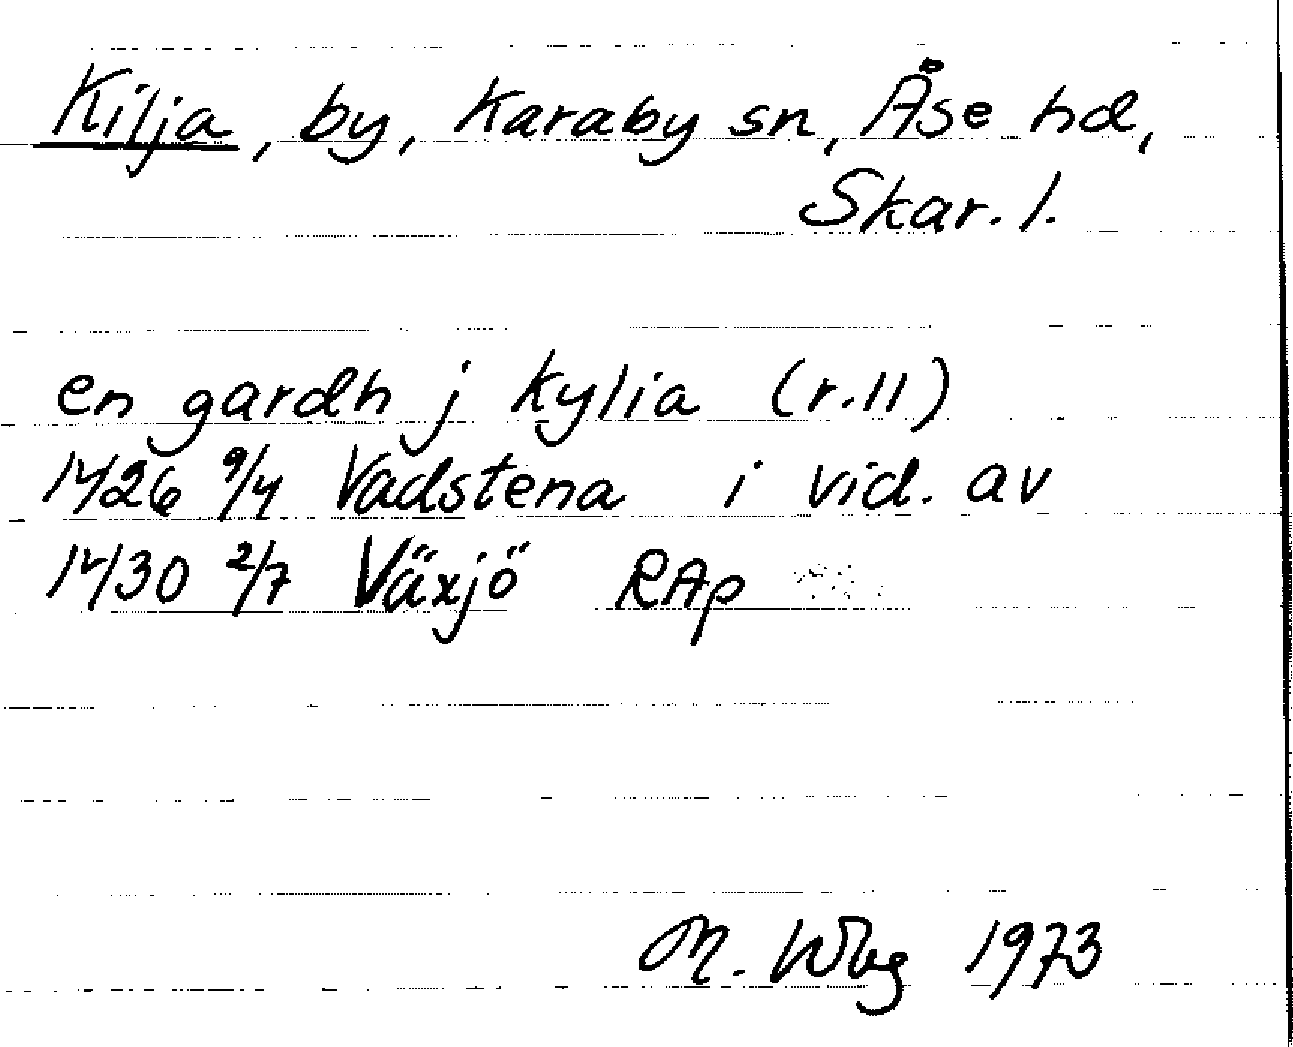 Kilja, by, Karaby sn, Åse hd,
Skar. l.
en gardh j kylia (r.11)
1426 9/4 Vadstena i vid. av
1430 2/7 Växjö RAp
M. Wbg 1973